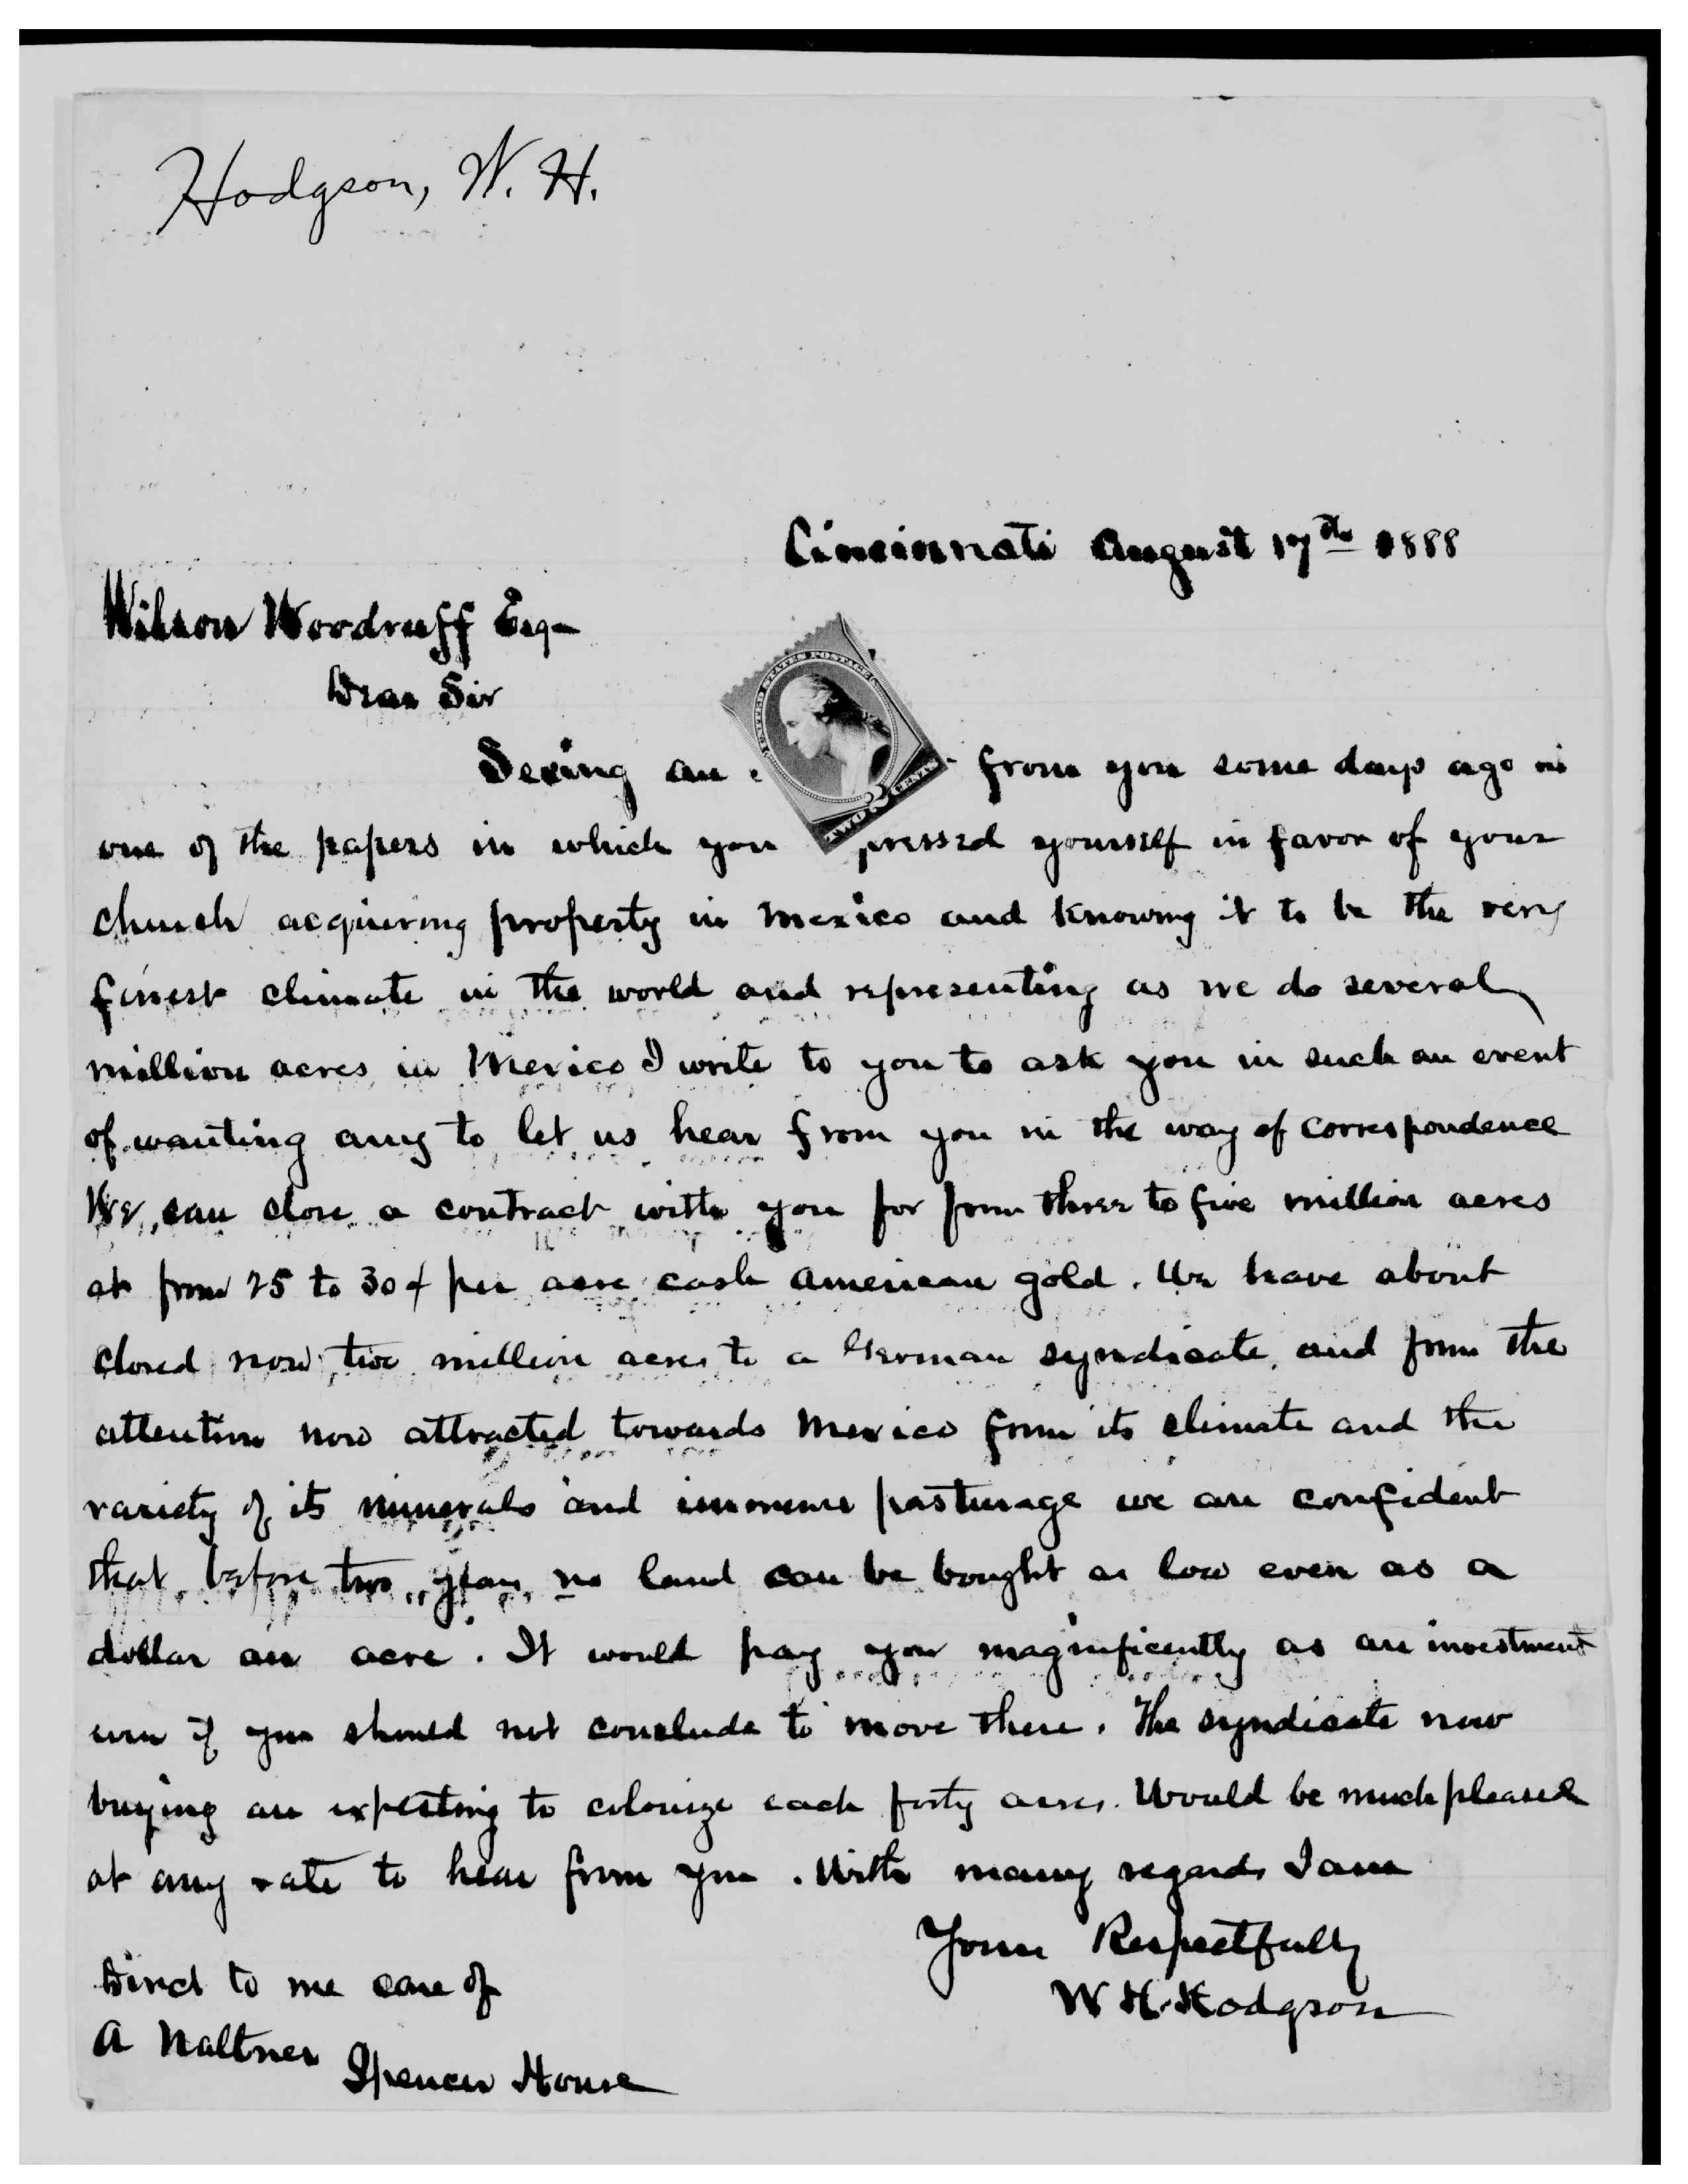 Hodgson, W. H.
Cincinnati August 17th 1888
Wilson Woodruff Esq-
Dear Sir
UNITED STATES POSTAGE
2
TWO CENTS
Seeing an from you some days ago in
one of the papers in which you pressed yourself in favor of your
church acquiring property in Mexico and knowing it to be the very
finest climate in the world and representing as we do several
million acres in Mexico I write to you to ask you in such an event
of wanting any to let us hear from you in the way of correspondence
We can close a contract with you for from three to five million acres
at from 25 to 30 ¢ per acre cash American gold. We have about
closed now two million acres to a German syndicate, and from the
attention now attracted towards Mexico from its climate and the
variety of its minerals and immense pasturage we are confident
that before two years no land can be bought as low even as a
dollar an acre. It would pay you magnificently as an investment
even if you should not conclude to move there. The syndicate now
buying are expecting to colonize each forty acres. Would be much pleased
at any rate to hear from you. With many regards I am
Yours Respectfully
W H. Hodgson
Direct to me care of
A Naltner
Spencer House